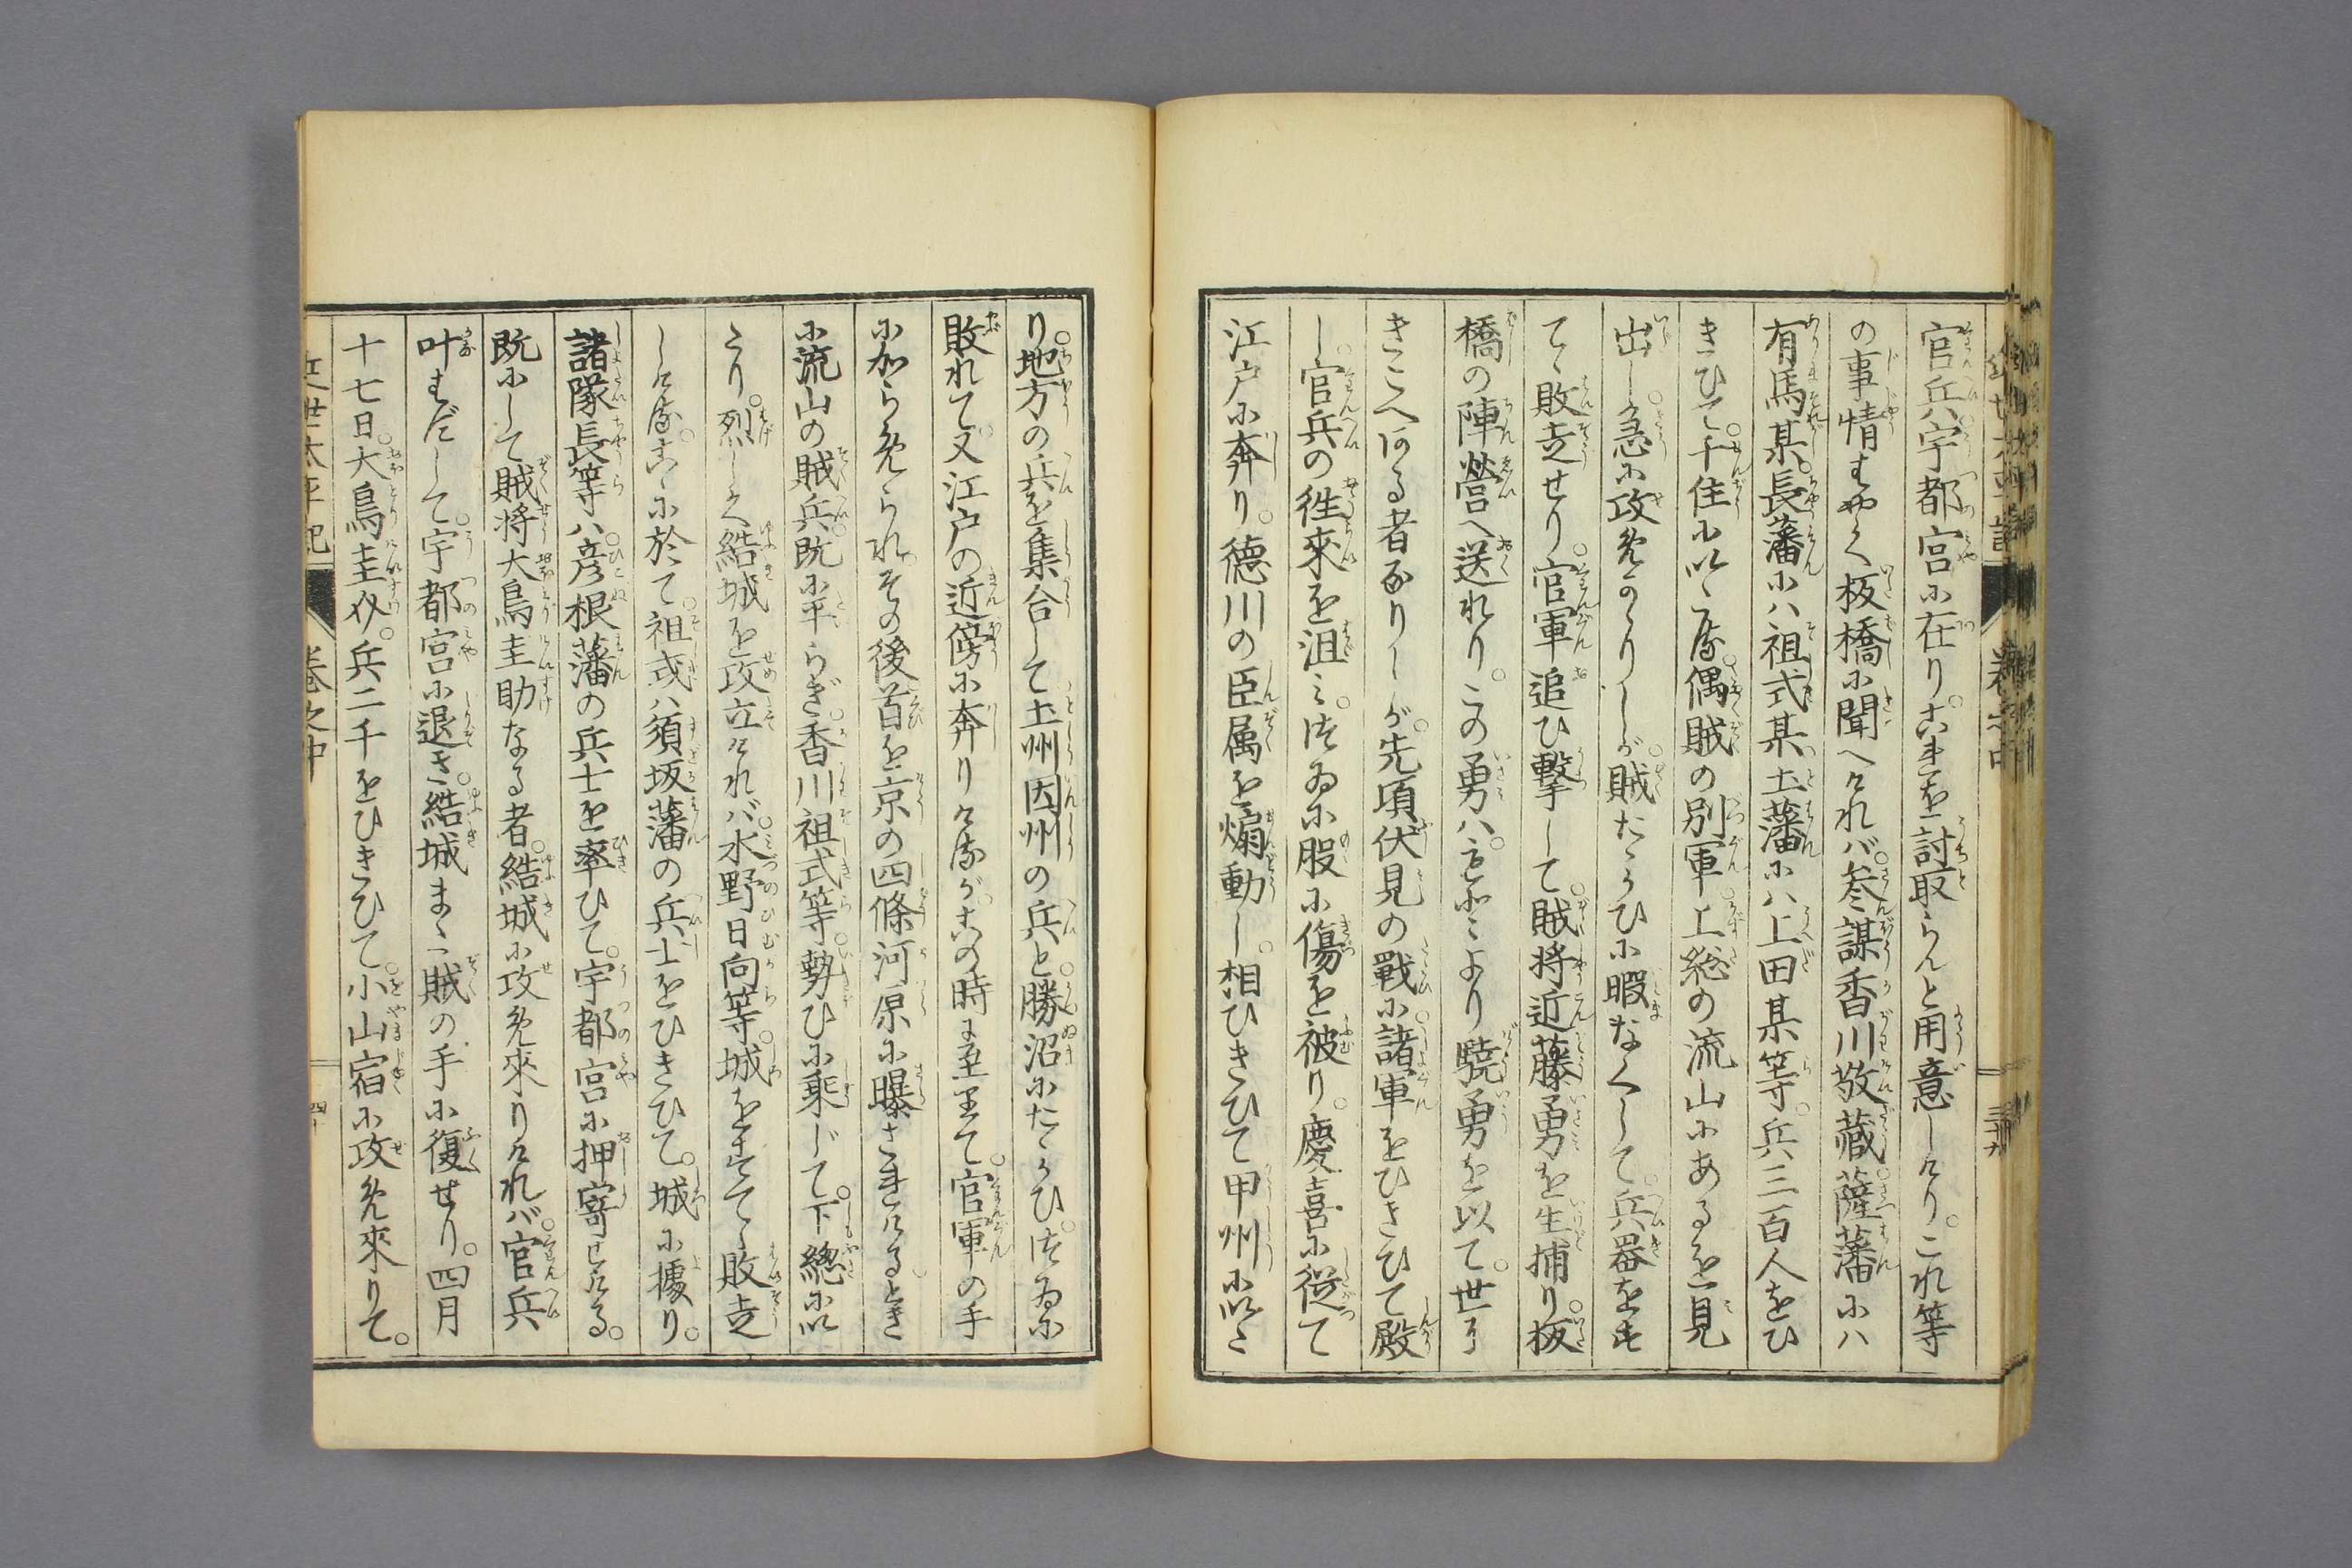 官兵宇都宮に在り。これを討取らんと用意しけり。これ等
の事情はやく板橋に聞へければ。参謀香川敬蔵。薩藩にハ
有馬某。長藩にハ祖式某土藩にハ上田某等。兵三百人をひ
きひて。千住に以たる。偶賊の別軍上総の流山にあるを見
出し。急に攻めかゝりしが。賊たゝかひに暇なくして。兵器をす
てゝ敗走せり。官軍追ひ撃して。賊将近藤勇を生捕り。板
橋の陣営へ送れり。この勇ハ。もとより驍勇を以て。世に
きこへある者なりしが。先頃伏見の戦に諸軍をひきひて殿
し。官兵の徃來を沮み。つゐに股に傷を被り。慶喜に從て
江戸に奔り。徳川の臣属を煽動し。相ひきひて甲州に以た
り。地方の兵を集合して土州因州の兵と。勝沼にたゝかひ。つゐに
敗れて。又江戸の近傍に奔りけるが。この時に至りて。官軍の手
に加らめられ。その後首を京の四條河原に曝されける。とき
に流山の賊兵。既に平らぎ。香川祖式等。勢ひに乗じて。下總に以
たり。烈しく結城を攻立ければ。水野日向等。城をすてゝ敗走
しける。こゝに於て。祖式ハ須坂藩の兵士をひきひて。城に據り。
諸隊長等ハ。彦根藩の兵士を率ひて。宇都宮に押寄せける。
既にして賊将大鳥圭助なる者。結城に攻め來りければ。官兵
叶はずして。宇都宮に退き。結城また賊の手に復せり。四月
十七日。大鳥圭介。兵二千をひきひて。小山宿に攻め來りて。
近世太平記 巻之中 四十